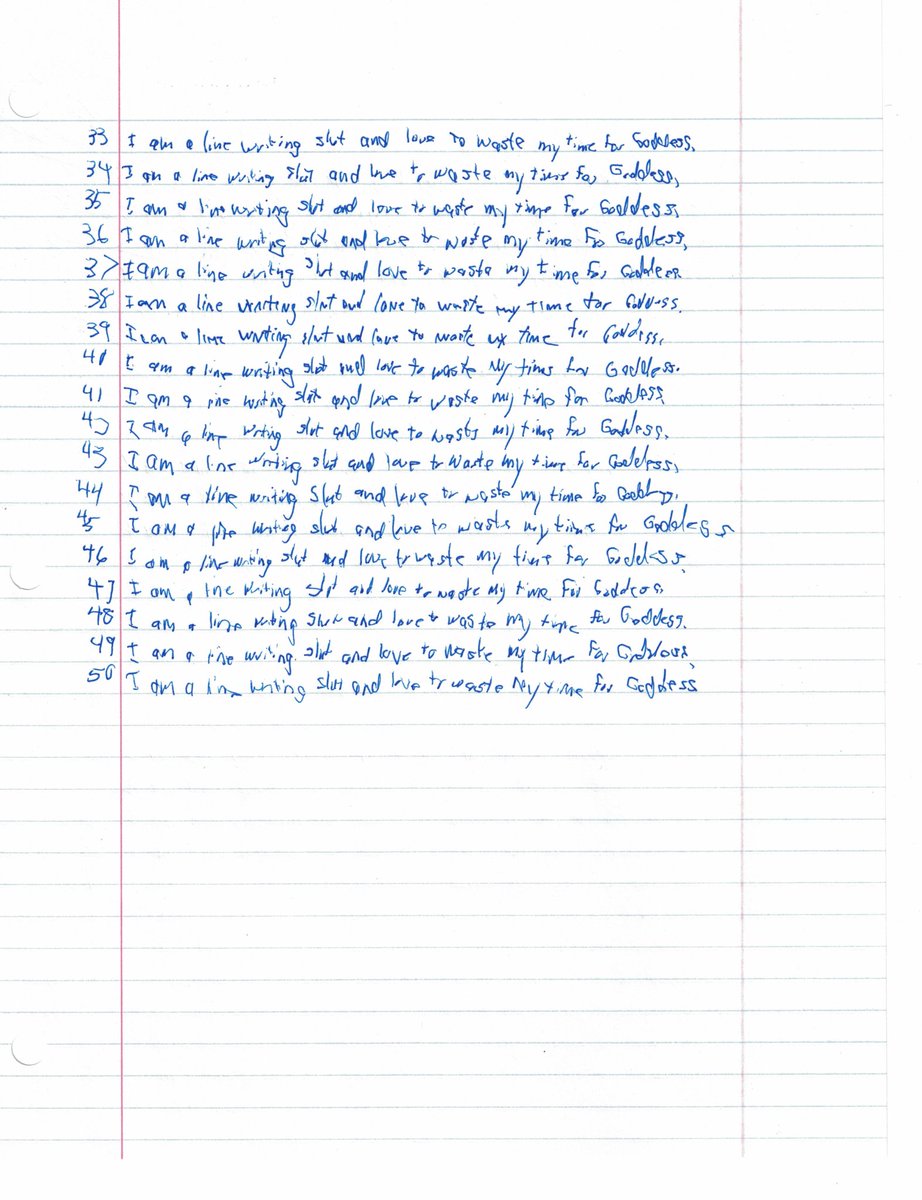 33 I am a line writing slut and love to waste my time for Goddess.
34 I am a line writing slut and love to waste my time for Goddess,
35 I am a line writing slut and love to waste my time for Goddess,
36 I am a line writing slut and love to waste my time For Goddess,
37 I am a line writing slut and love to waste my time For Goddess
38 I am a line writing slut and love to waste my time for Goddess.
39 I am a line writing slut and love to waste my time for Goddess.
40 I am a line writing slut and love to waste my time for Goddess.
41 I am a line writing slut and love to waste my time for Goddess
42 I am a line writing slut and love to waste my time for Goddess.
43 I am a line writing slut and love to waste my time for Goddess,
44 I am a line writing slut and love to waste my time for
45 I am a line writing slut and love to waste my time for Goddess
46 I am a line writing slut and love to waste my time for Goddess.
47 I am a line writing slut and love to waste my time For Goddess.
48 I am a line writing slut and love to waste my time for Goddess.
49 I am a line writing slut and love to waste my time for
50 I am a line writing slut and love to waste my time for Goddess